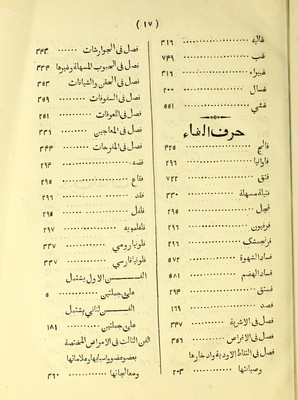 ( ١٧ )
غاليه ٣١٦
غب ٧٤٩
غبيراء ٣١٦
غسال ٢٠٠
غشي ٥٥١
حرف الفاء
فالج ٤٢٥
فاوانيا ٢٩٦
فتق ٧٢٢
فتيلة مسهلة ٣٣٠
فجل ٢٩٥
فربيون ٢٩٦
فرنجمشك ٢٩٦
فساد الشهوة ٥٧٢
فساد الهضم ٥٨١
فستق ٢٩٤
فصد ١٦٩
فصل في الاشربة ٣٤٧
فصل في الاقراص ٣٥٦
فصل في التقاط الادوية وادخارها
وصيانتها ٢٠٣
فصل في الجوارشات ٣٤٣
فصل في الحبوب المسهلة وغيرها ٣٣٤
فصل في الحقن والشيافات ٣٥٣
فصل في السفوفات ٣٥٩
فصل في اللعوقات ٢٥١
فصل في المعاجين ٣٣١
فصل في المفرحات ٣٤٤
فضه ٢٩٤
فقاع ٢٩٥
فقد ٢٩٦
فلفل ٢٩٥
فلفلمويه ٢٩٧
فلونيا رومي ٣٣٧
فلونيا فارسي ٣٣٧
الفن الاول يشتمل
على جملتين ٥
الفن الثاني يشتمل
على جملتين ١٨١
الفن الثالث في الامراض المختصة
بعضو عضو واسبابها وعلاماتها
ومعالجاتها ٣٦٠